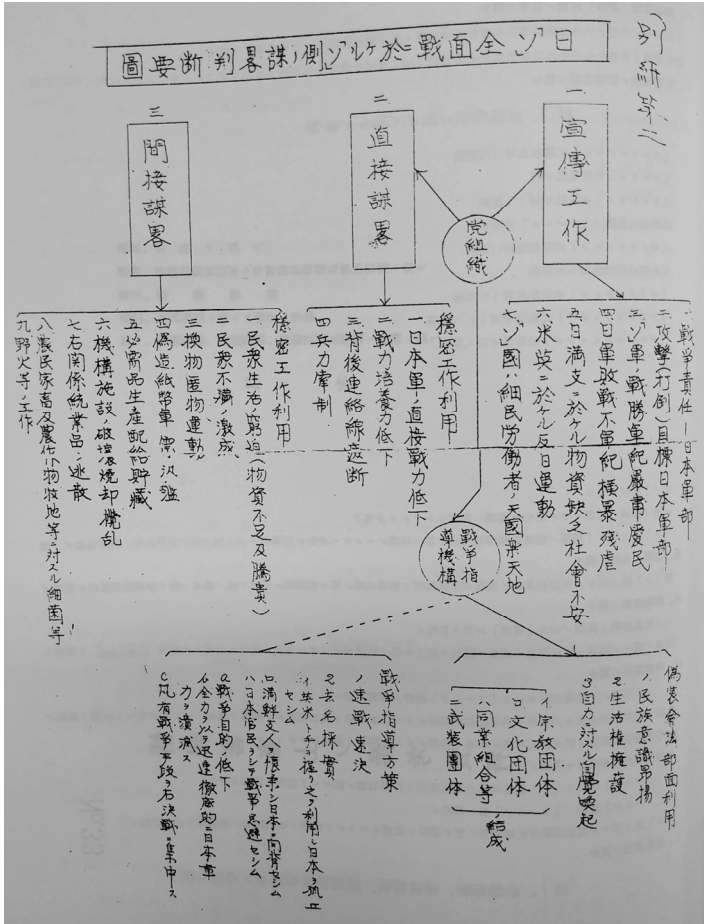 別紙第二
日「ソ」全面戰ニ於ケル「ソ」側ノ謀畧判断要圖
一 宣傳工作
二 直接謀畧
三 間接謀畧
党組織
一、戰爭責任ー日本軍部
二、攻撃(打倒)目標日本軍部
三、「ソ」軍ノ戰勝軍紀嚴肅愛民
四、日軍敗戰不軍紀橫暴残虐
五、日満支ニ於ケル物資缺乏社會不安
六、米英ニ於ケル反日運動
七、「ソ」國ハ細民労働者ノ天國楽天地
穩密工作利用
一、日本軍ノ直接戰力低下
二、戰力培養力低下
三、背後連絡線遮断
四、兵力牽制
穩密工作利用
一、民衆生活ノ窮迫(物資不足及騰貴)
二、民衆不滿ノ激成
三、換物匿物運動
四、偽造紙幣軍票ノ汎濫
五、必需品生産配給貯藏
六、機構施設ノ破壊焼却攪乱
七、右関係統業品ノ逃散
八、農民家畜及農作物牧地等ニ対スル細菌等
九、野火等ノ工作
戰爭指導機構
偽装合法部面利用
1、民族意識昂揚
2、生活權擁護
3、自力ニ対スル自覺喚起
イ、宗教団体
ロ、文化団体
ハ、同業組合等
ニ、武装團体
ノ結成
戰爭指導方策
1、速戰速決
2、去名採實
イ、英米ト手ヲ握リ之ヲ利用シ日本ヲ孤立セシム
ロ、満鮮支人ヲ懐柔シ日本ニ向背セシム
ハ、日本官民ヲシテ戰爭忌避セシム
a、戰爭目的低下
b、全力ヲ以テ迅速徹底的ニ日本軍力ヲ潰滅ス
C、凡有戰爭手段ヲ右決戰ニ集中ス